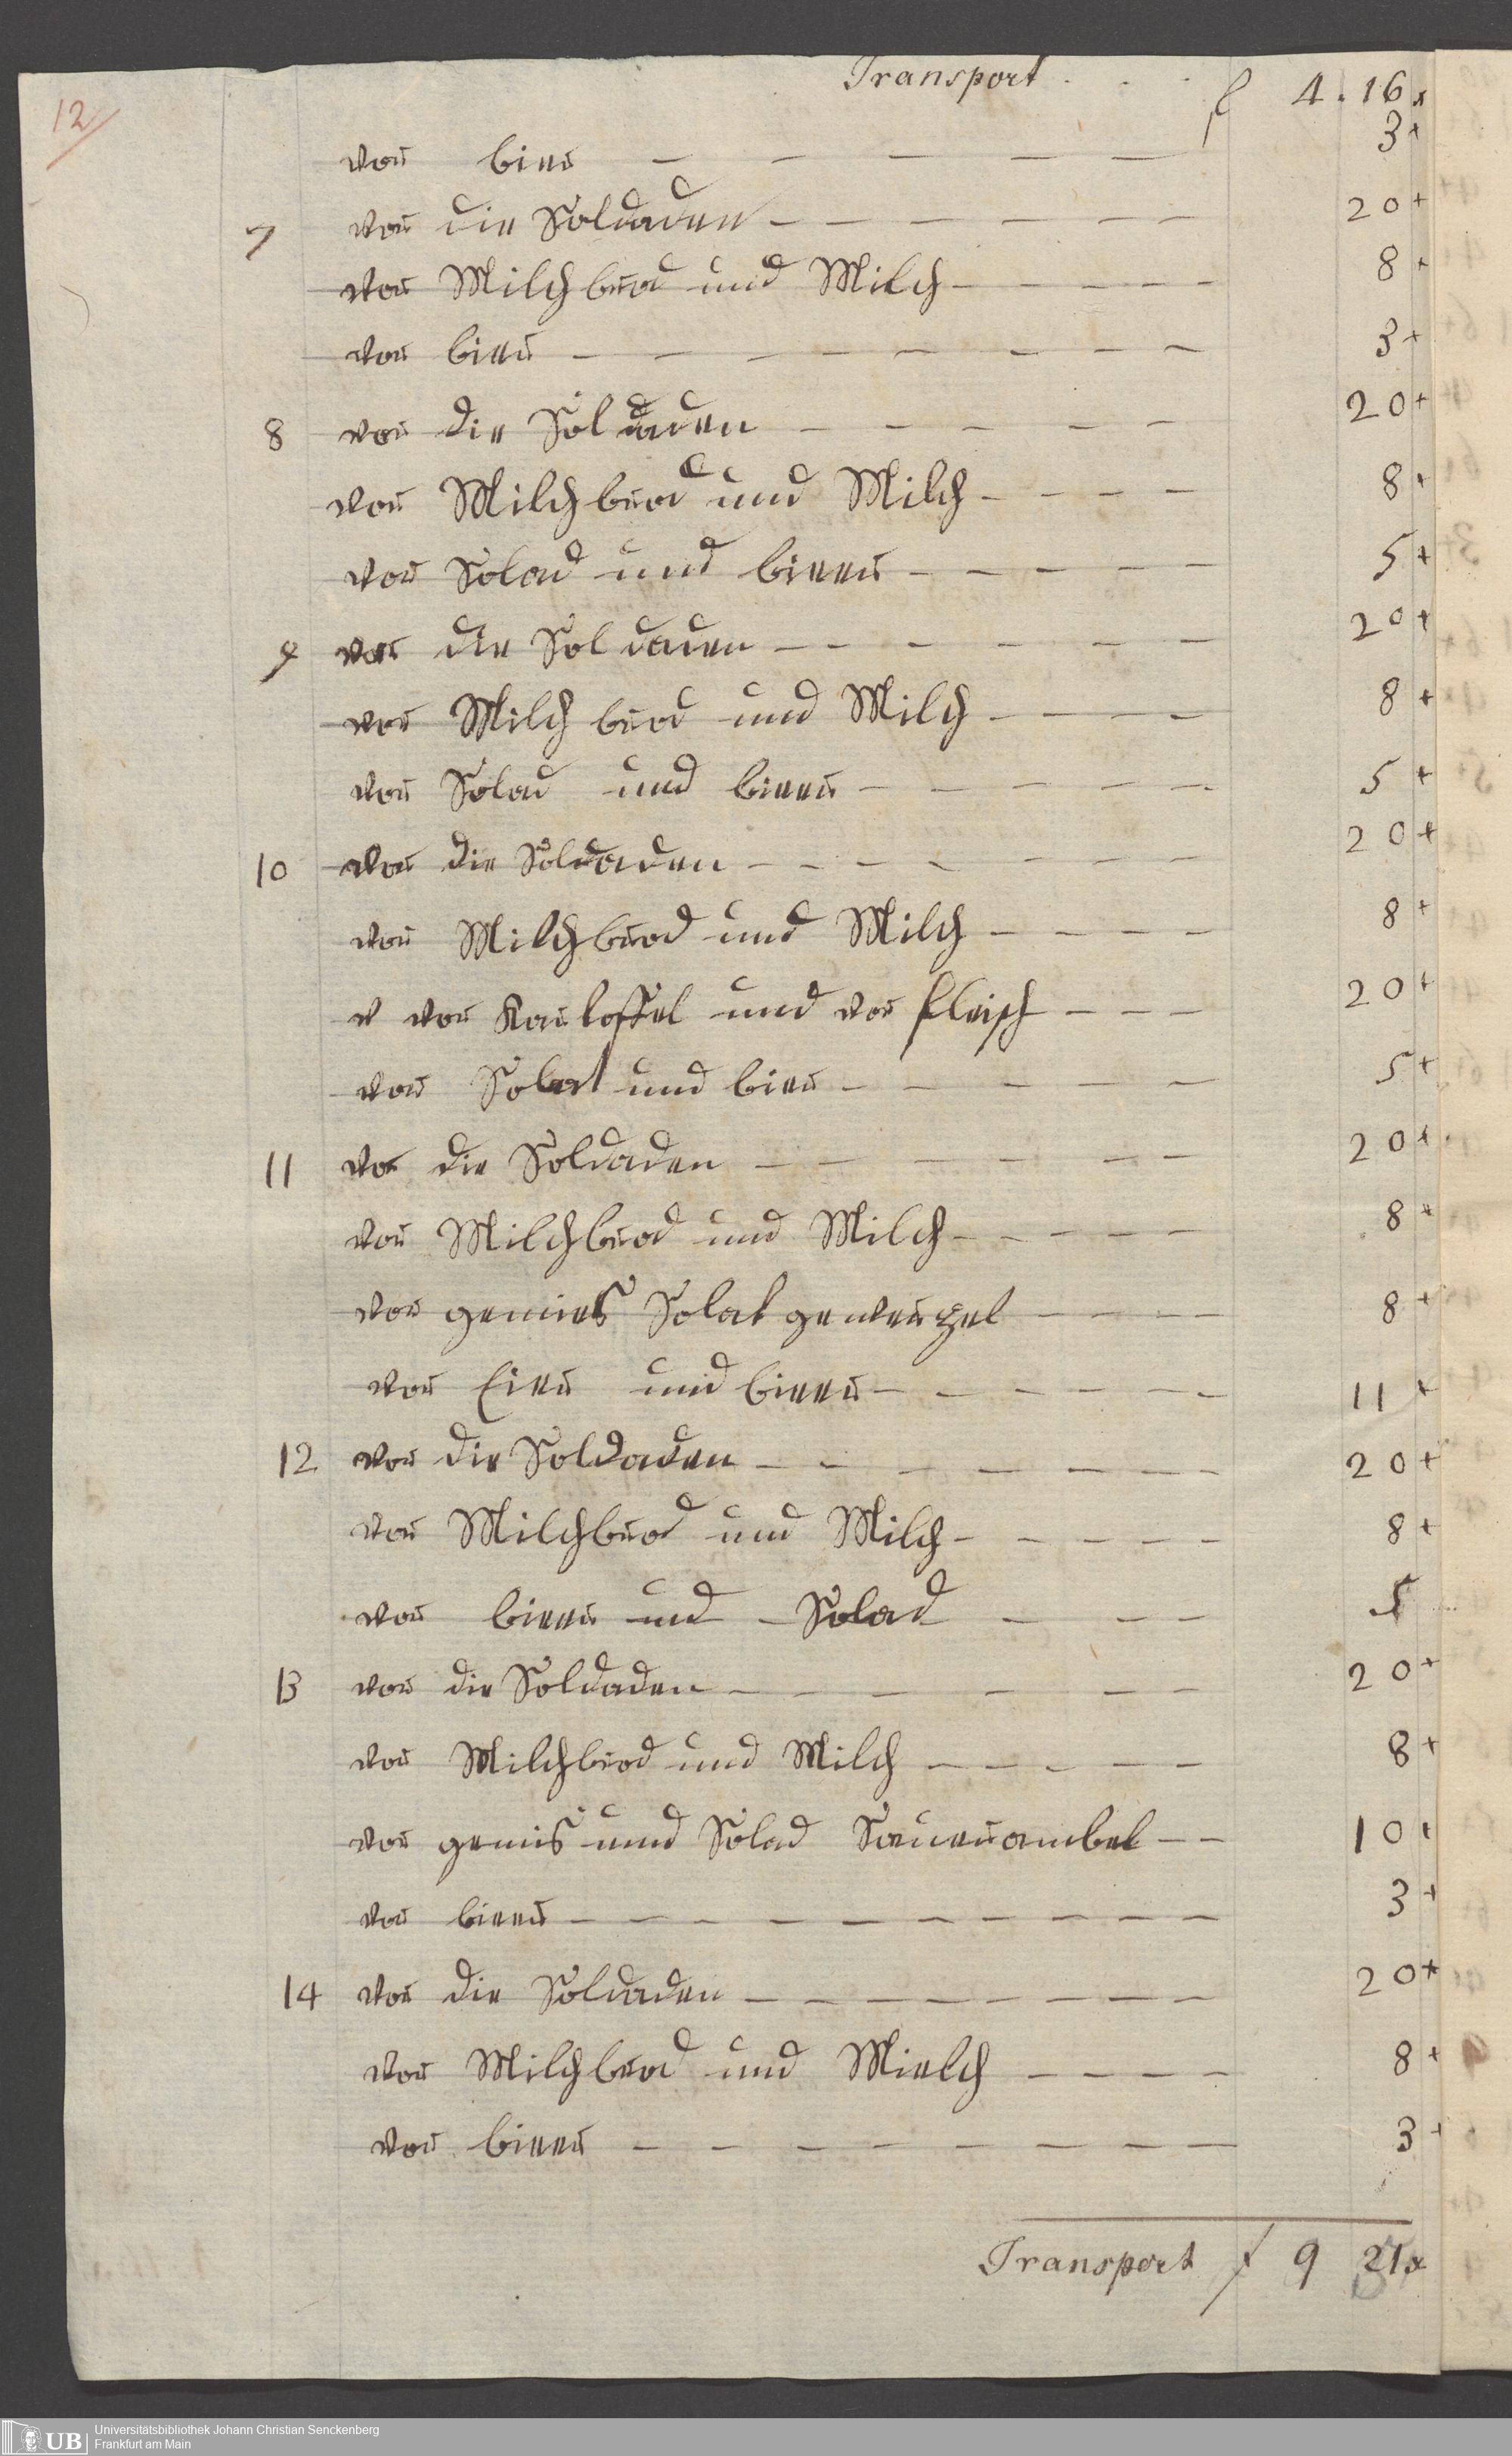 12
Transport . . . f 4 . 16 x
vor bier — — — — — 3 +
7 vor die Soldaden — — — — — — 20 +
vor Milchbrod und Milch — — — — — 8 +
vor bier — — — — — — — — 3 +
8 vor die Soldaden — — — — — 20 +
vor Milchbrod und Milch — — — — 8 +
vor Solad und bieer — — — — — 5 +
9 vor die Soldaden — — — — — — 20 +
vor Milch brod und Milch — — — — 8 +
vor Solad und bieer — — — — — 5 +
10 vor die Soldaden — — — — — — — 20 +
vor Milchbrod und Milch — — — — 8 +
v vor Kartoffel und vor fleisch — — — 20 +
vor Solat und bier — — — — 5 +
11 vor die Soldaden — — — — — — 20 +
vor Milchbrod und Milch — — — — — 8 +
vor gemies Solat gewerzel — — — — 8 +
vor Eier und bieer — — — — — — 11 +
12 vor die Soldaden — — — — — — — 20 +
vor Milchbrod und Milch — — — — — 8 +
vor bieer und Solad — — — 5
13 vor die Soldaden — — — — — — 20 +
vor Milchbrod und Milch — — — — — 8 +
vor gemis und Solad Sauerambel — — 10 +
vor bieer — — — — — — — — — — 3 +
14 vor die Soldaden — — — — — — — — 20 +
vor Milchbrod und Mielch — — — — 8 +
vor bieer — — — — — — — — 3 +
Transport f 9 21 x
UB Universitätsbibliothek Johann Christian Senckenberg
Frankfurt am Main